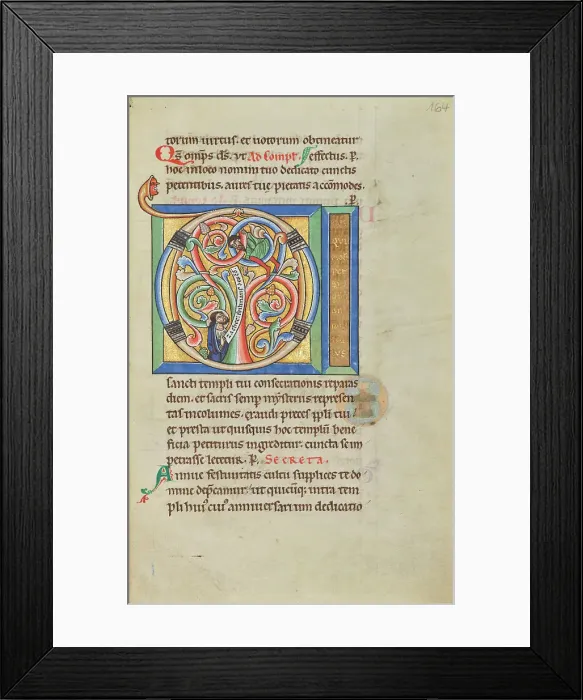 164
torum uirtus. et uotorum obtineatur
Qs omps ds. ut Ad Compt. effectus. P.
hoc in loco nomini tuo dedicato cunctis
petentibus. aures tue pietatis accomodes.
P.
sancti templi tui consecrationis reparas
diem. et sacris semp mysteriis represen
tas incolumes. exaudi preces ppli tui.
et presta ut quisquis hoc templum bene
ficia petiturus ingreditur. cuncta se im
petrasse letetur. P. SECRETA.
Annue festiuitatis cultu supplices te do
mine deprecamur. ut quicuq; intra tem
pli hui' cui' anniuersarium dedicatio